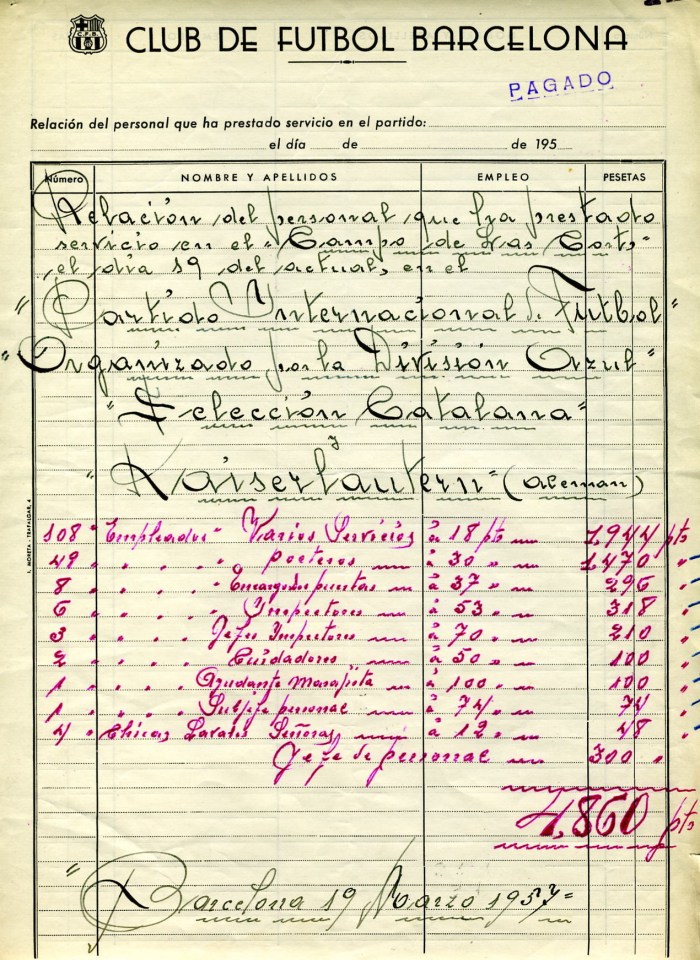 C F B
CLUB DE FUTBOL BARCELONA
PAGADO
Relación del personal que ha prestado servicio en el partido:
el día de de 195
Número NOMBRE Y APELLIDOS EMPLEO PESETAS
Relación del personal que ha prestado
servicio en el "Campo de Las Corts"
el dia 19 del actual, en el
"Partido Internacional de Futbol"
"Organizado por la División Azul"
"Selección Catalana"
y
"Kaiserlautern" (aleman)
108 " Empleados " Varios Servicios à 18 pts 1,944 pts
49 " " " " porteros à 30 " 1,470 "
8 " " " " Encargados puertas à 37 " 296 "
6 " " " " Inspectores à 53 " 318 "
3 " " " Jefes Inspectores à 70 " 210 "
2 " " " " Cuidadores à 50 " 100 "
1 " " " Ayudante Masajista à 100 " 100 "
1 " " " Subjefe personal à 74 " 74 "
4 " Chicas Lavabos Señoras à 12 " 48 "
Jefe de personal 300 "
4,860 pts
"Barcelona 19 Marzo 1957="
I. MORETA - TRAFALGAR, 4